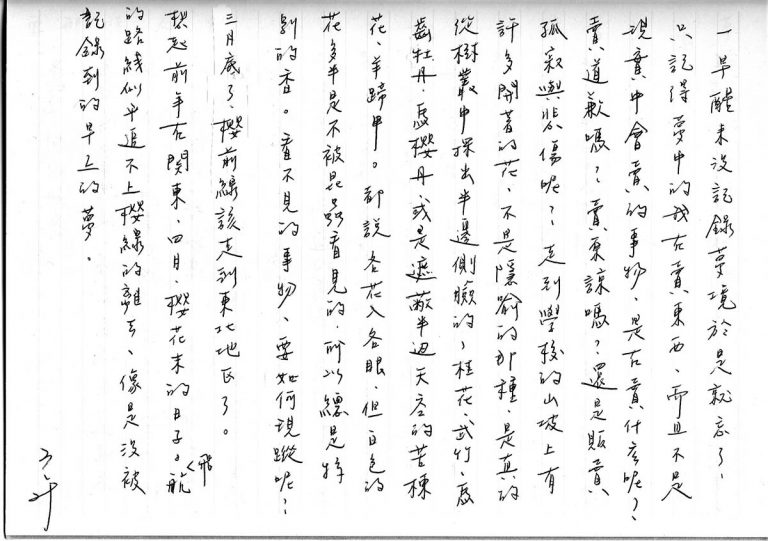 一早醒來沒記錄夢境於是就忘了，
只記得夢中的我在賣東西，而且不是
現實中會賣的事物，是在賣什麼呢？
賣道歉嗎？賣東諒嗎？還是販賣
孤寂與悲傷呢？走到學校的山坡上有
許多開著的花，不是隱喻的那種，是真的
從樹叢中探出半邊側臉的，桂花、武竹、
齒牡丹、櫻丹、或是遮蔽半邊天空的苦楝
花、羊蹄甲。都說各花入各眼，但白色的
花多半是不被昆蟲看見的，所以總是特
別的香。看不見的事物，要如何現蹤呢？
三月底了，櫻前線該走到東北地區了。
想起前年在関東，四月，櫻花末的日子。飛航
的路綫似乎追不上櫻線的離去，像是沒被
記錄到的早上的夢。